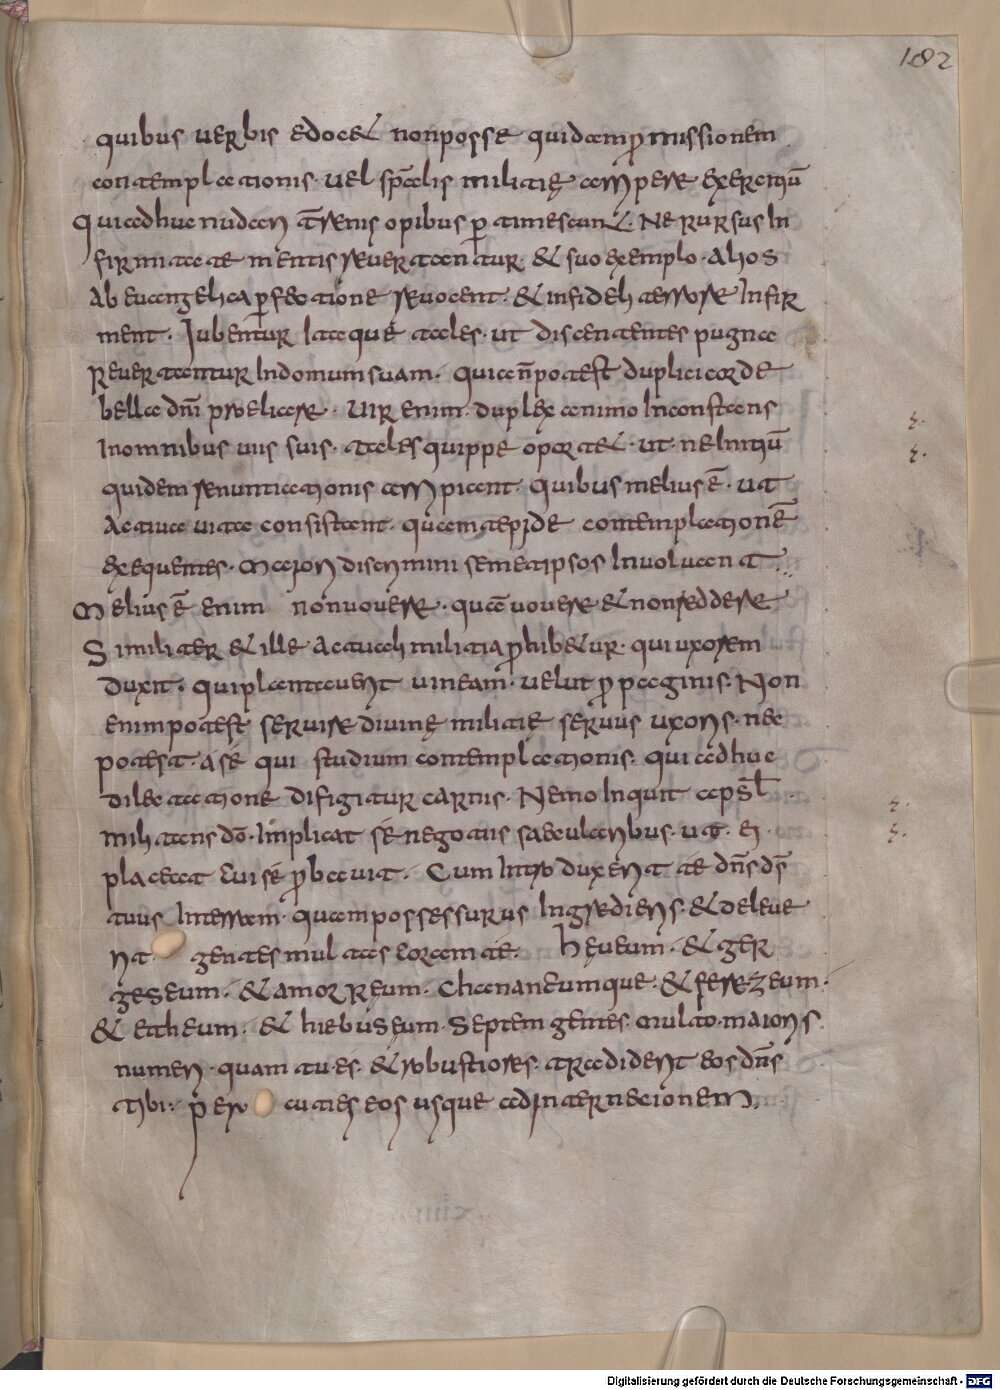 182
quibus uerbis edocet nonposse quidam ꝓmissionem
contemplationis· uel sp̄talis militię arripere exercitū
Qui adhuc nudari t̄renis opibus ꝑtimescunt· Ne rursus in
firmitate mentis reuertantur· & suo exemplo· alios
ab euangelica ꝑfectione reuocent· & infideli terrore infir
ment· Iubentur itaque tales· ut discentes pugna
reuertantur indomum suam· quia n̄ potest duplici corde
bella dn̄i proeliare· Uir enim· duplex animo inconstans
inomnibus uiis suis· tales quippe oportet· ut ne initiū
quidem renuntiationis arripiant· quibus melius ē· ut
actiua uita consistant· quam tepide contemplationē
exequentes· maiori discrimini semetipsos inuoluant·
Melius ē enim non uouere· quā uouere & non reddere
Similiter & ille actali militia ꝓhibetur· qui uxorem
duxit· qui plantauerit uineam· uelut ꝓpaginis· Non
enim potest seruire diuinę militię seruus uxoris· nec
potest asse qui studium contemplationis· qui adhuc
dilectatione difigitur carnis· Nemo inquit apsl̄
militans dō· implicat se negotiis saecularibus· ut· ei
placeat cui se ꝓbauit· Cum introduxerit te dn̄s ds̄
tuus interram· quam possessurus ingredieris· & deleue
rit gentes multas coram te· heueum· & ger
geseum· & amorreum· Chananeumque· & ferezeum·
& etheum· & hiebuseum· Septem gentes· multo· maioris
numeri· quam tu es· & robustiores· tradiderit eos dn̄s
tibi· ꝑcuties eos usque adinternecionem·
Digitalisierung gefördert durch die Deutsche Forschungsgemeinschaft - DFG